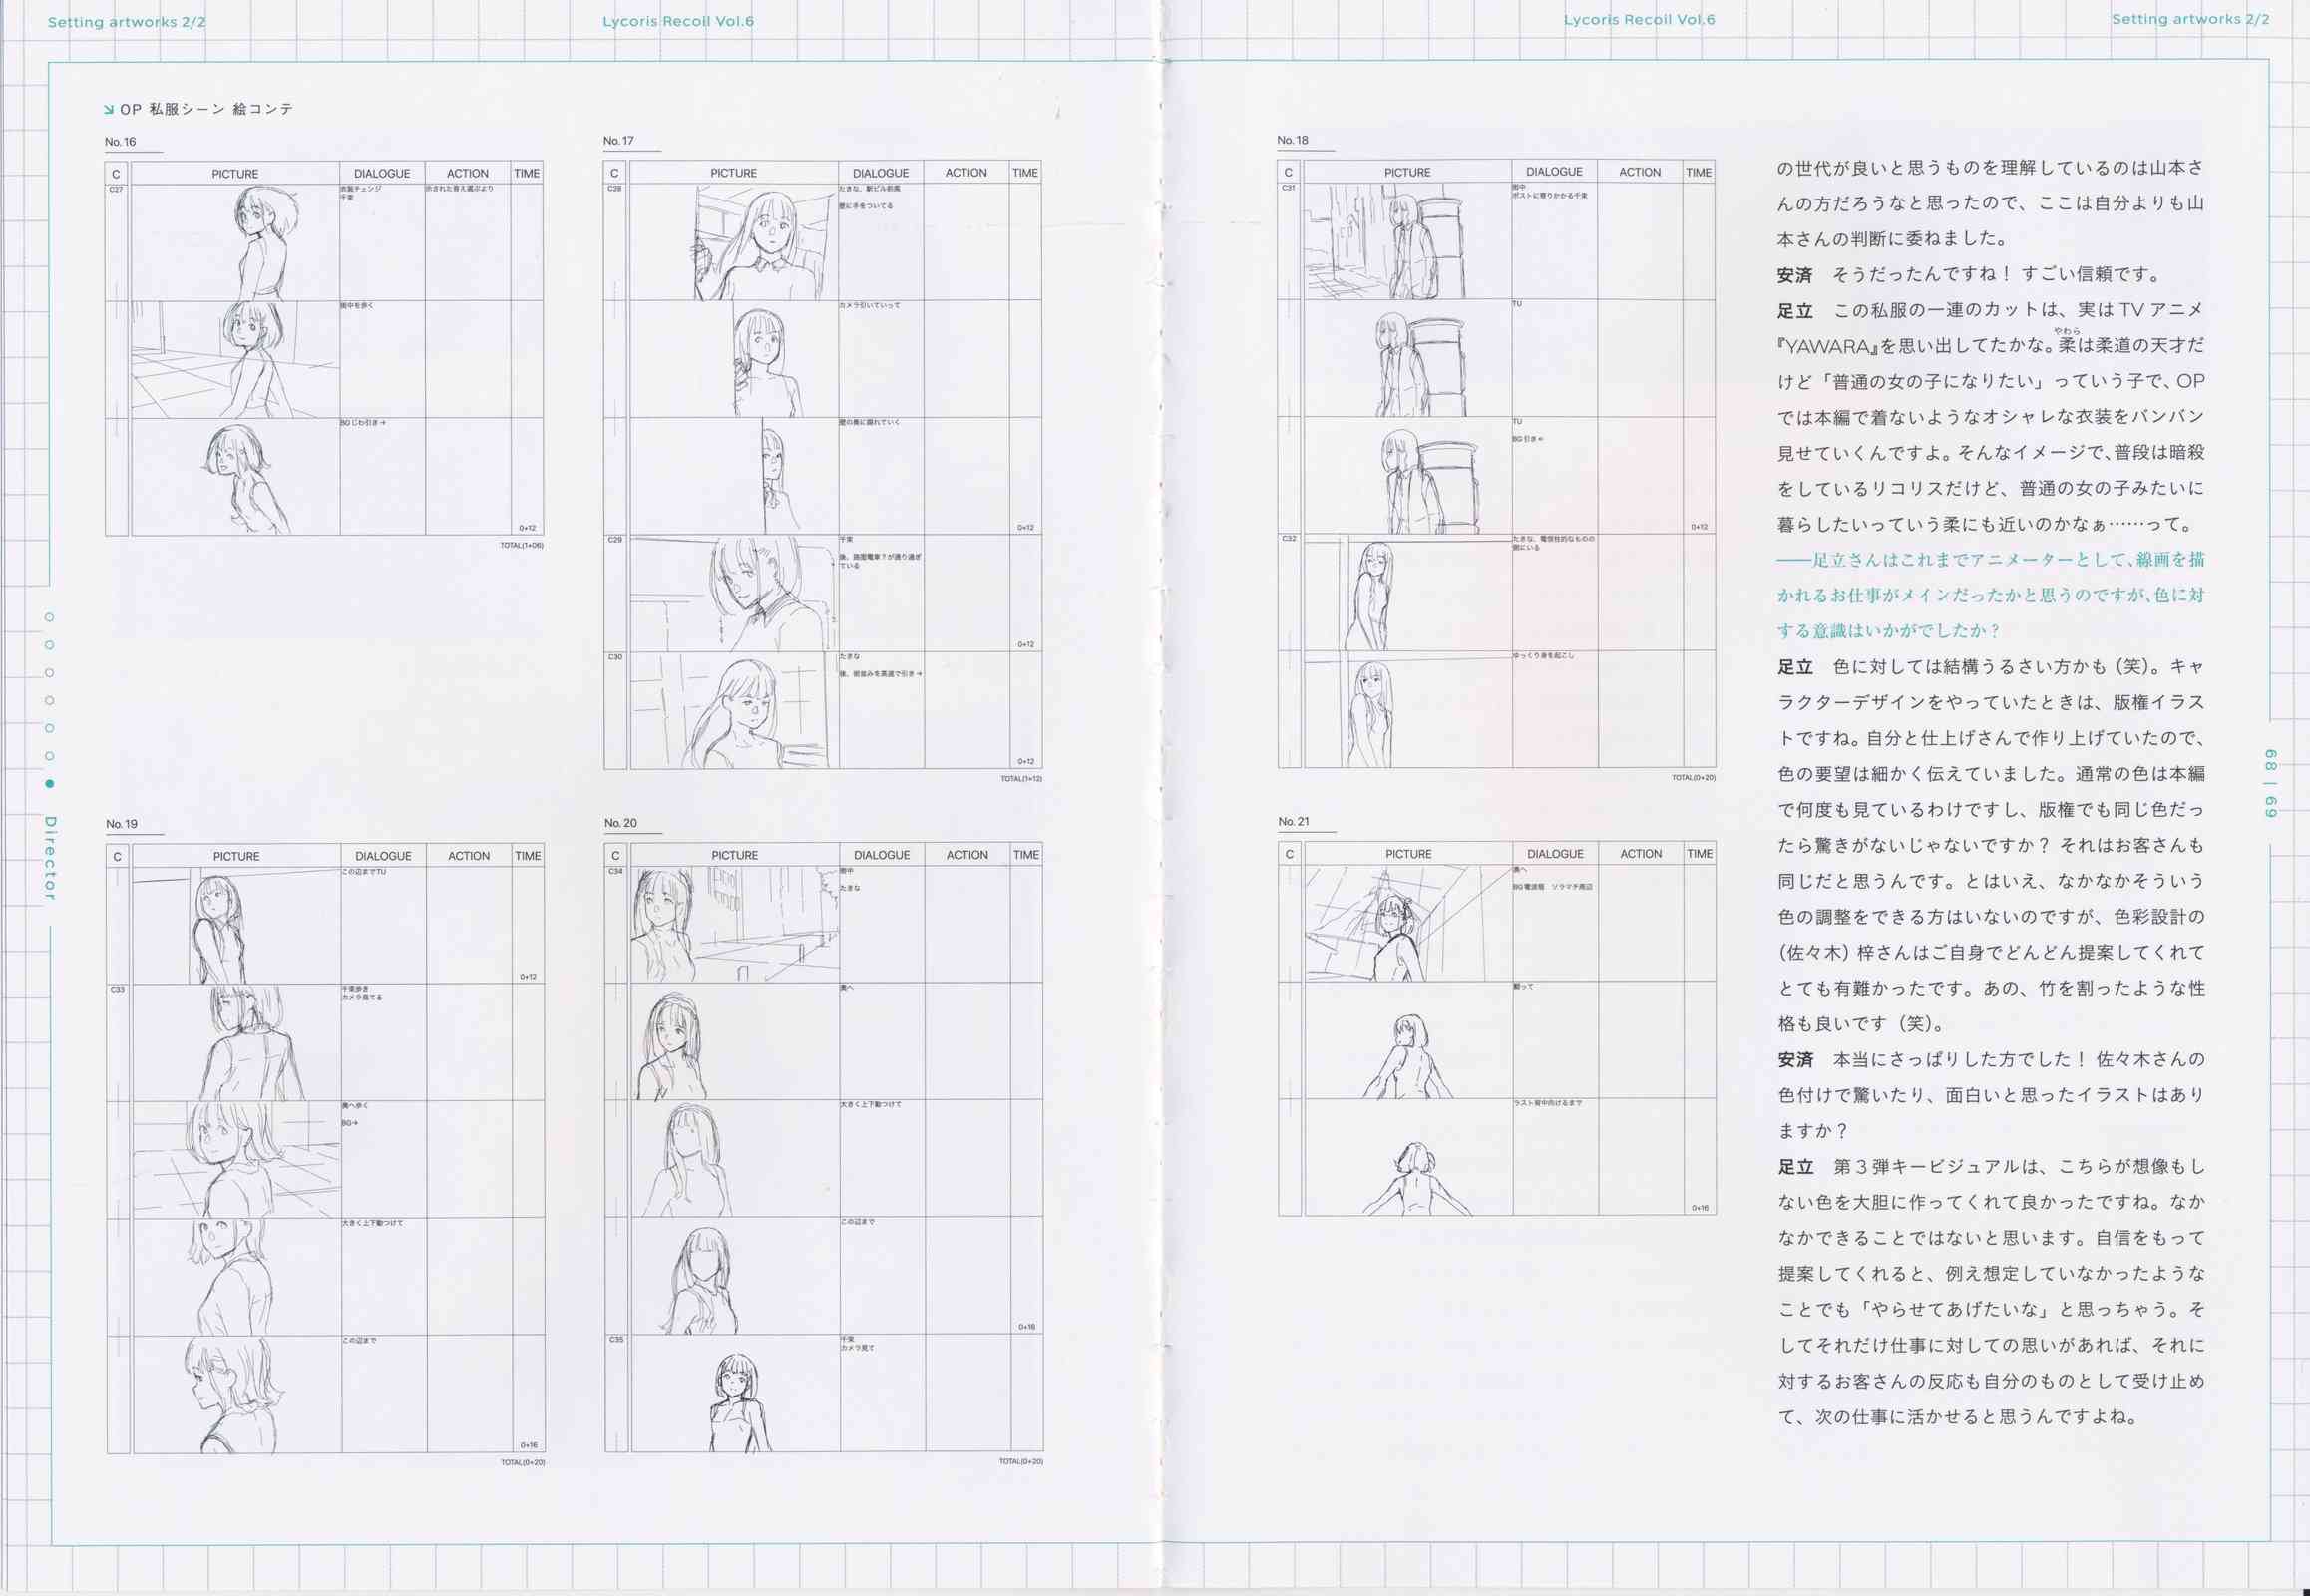 Setting artworks 2/2
Lycoris Recoil Vol.6
Lycoris Recoil Vol.6
Setting artworks 2/2
OP 私服シーン 絵コンテ
No.16
C PICTURE DIALOGUE ACTION TIME
C27
衣装チェンジ
千束
示された答え選ぶより
街中を歩く
BGじわ引き→
0+12
TOTAL(1+06)
No.17
C PICTURE DIALOGUE ACTION TIME
C28
たきな、駅ビル前風
壁に手をついてる
カメラ引いていって
壁の奥に隠れていく
0+12
C29
千束
後、路面電車?が通り過ぎ
ている
0+12
C30
たきな
後、街並みを高速で引き→
0+12
TOTAL(1+12)
No.18
C PICTURE DIALOGUE ACTION TIME
C31
街中
ポストに寄りかかる千束
TU
TU
BG引き←
0+12
C32
たきな、電信柱的なものの
側にいる
ゆっくり身を起こし
TOTAL(0+20)
No.19
C PICTURE DIALOGUE ACTION TIME
この辺までTU
0+12
C33
千束歩き
カメラ見てる
奥へ歩く
BG→
大きく上下動つけて
この辺まで
0+16
TOTAL(0+20)
No.20
C PICTURE DIALOGUE ACTION TIME
C34
街中
たきな
奥へ
大きく上下動つけて
この辺まで
0+16
C35
千束
カメラ見て
TOTAL(0+20)
No.21
C PICTURE DIALOGUE ACTION TIME
奥へ
BG電波塔 ソラマチ周辺
翻って
ラスト背中向けるまで
0+16
の世代が良いと思うものを理解しているのは山本さ
んの方だろうなと思ったので、ここは自分よりも山
本さんの判断に委ねました。
安済 そうだったんですね！ すごい信頼です。
足立 この私服の一連のカットは、実はTVアニメ
『YAWARA』を思い出してたかな。柔は柔道の天才だ
やわら
けど「普通の女の子になりたい」っていう子で、OP
では本編で着ないようなオシャレな衣装をバンバン
見せていくんですよ。そんなイメージで、普段は暗殺
をしているリコリスだけど、普通の女の子みたいに
暮らしたいっていう柔にも近いのかなぁ……って。
――足立さんはこれまでアニメーターとして、線画を描
かれるお仕事がメインだったかと思うのですが、色に対
する意識はいかがでしたか？
足立 色に対しては結構うるさい方かも（笑）。キャ
ラクターデザインをやっていたときは、版権イラス
トですね。自分と仕上げさんで作り上げていたので、
色の要望は細かく伝えていました。通常の色は本編
で何度も見ているわけですし、版権でも同じ色だっ
たら驚きがないじゃないですか？ それはお客さんも
同じだと思うんです。とはいえ、なかなかそういう
色の調整をできる方はいないのですが、色彩設計の
（佐々木）梓さんはご自身でどんどん提案してくれて
とても有難かったです。あの、竹を割ったような性
格も良いです（笑）。
安済 本当にさっぱりした方でした！ 佐々木さんの
色付けで驚いたり、面白いと思ったイラストはあり
ますか？
足立 第3弾キービジュアルは、こちらが想像もし
ない色を大胆に作ってくれて良かったですね。なか
なかできることではないと思います。自信をもって
提案してくれると、例え想定していなかったような
ことでも「やらせてあげたいな」と思っちゃう。そ
してそれだけ仕事に対しての思いがあれば、それに
対するお客さんの反応も自分のものとして受け止め
て、次の仕事に活かせると思うんですよね。
Director
68 | 69